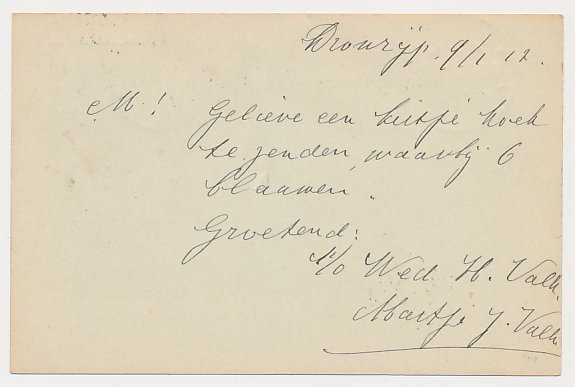 Dronrijp. 9/1 12.
M! Gelieve een kistje koek
te zenden, waarbij 6
blaauwen.
Groetend:
p/o Wed. H. Valk.
Martje J. Valk